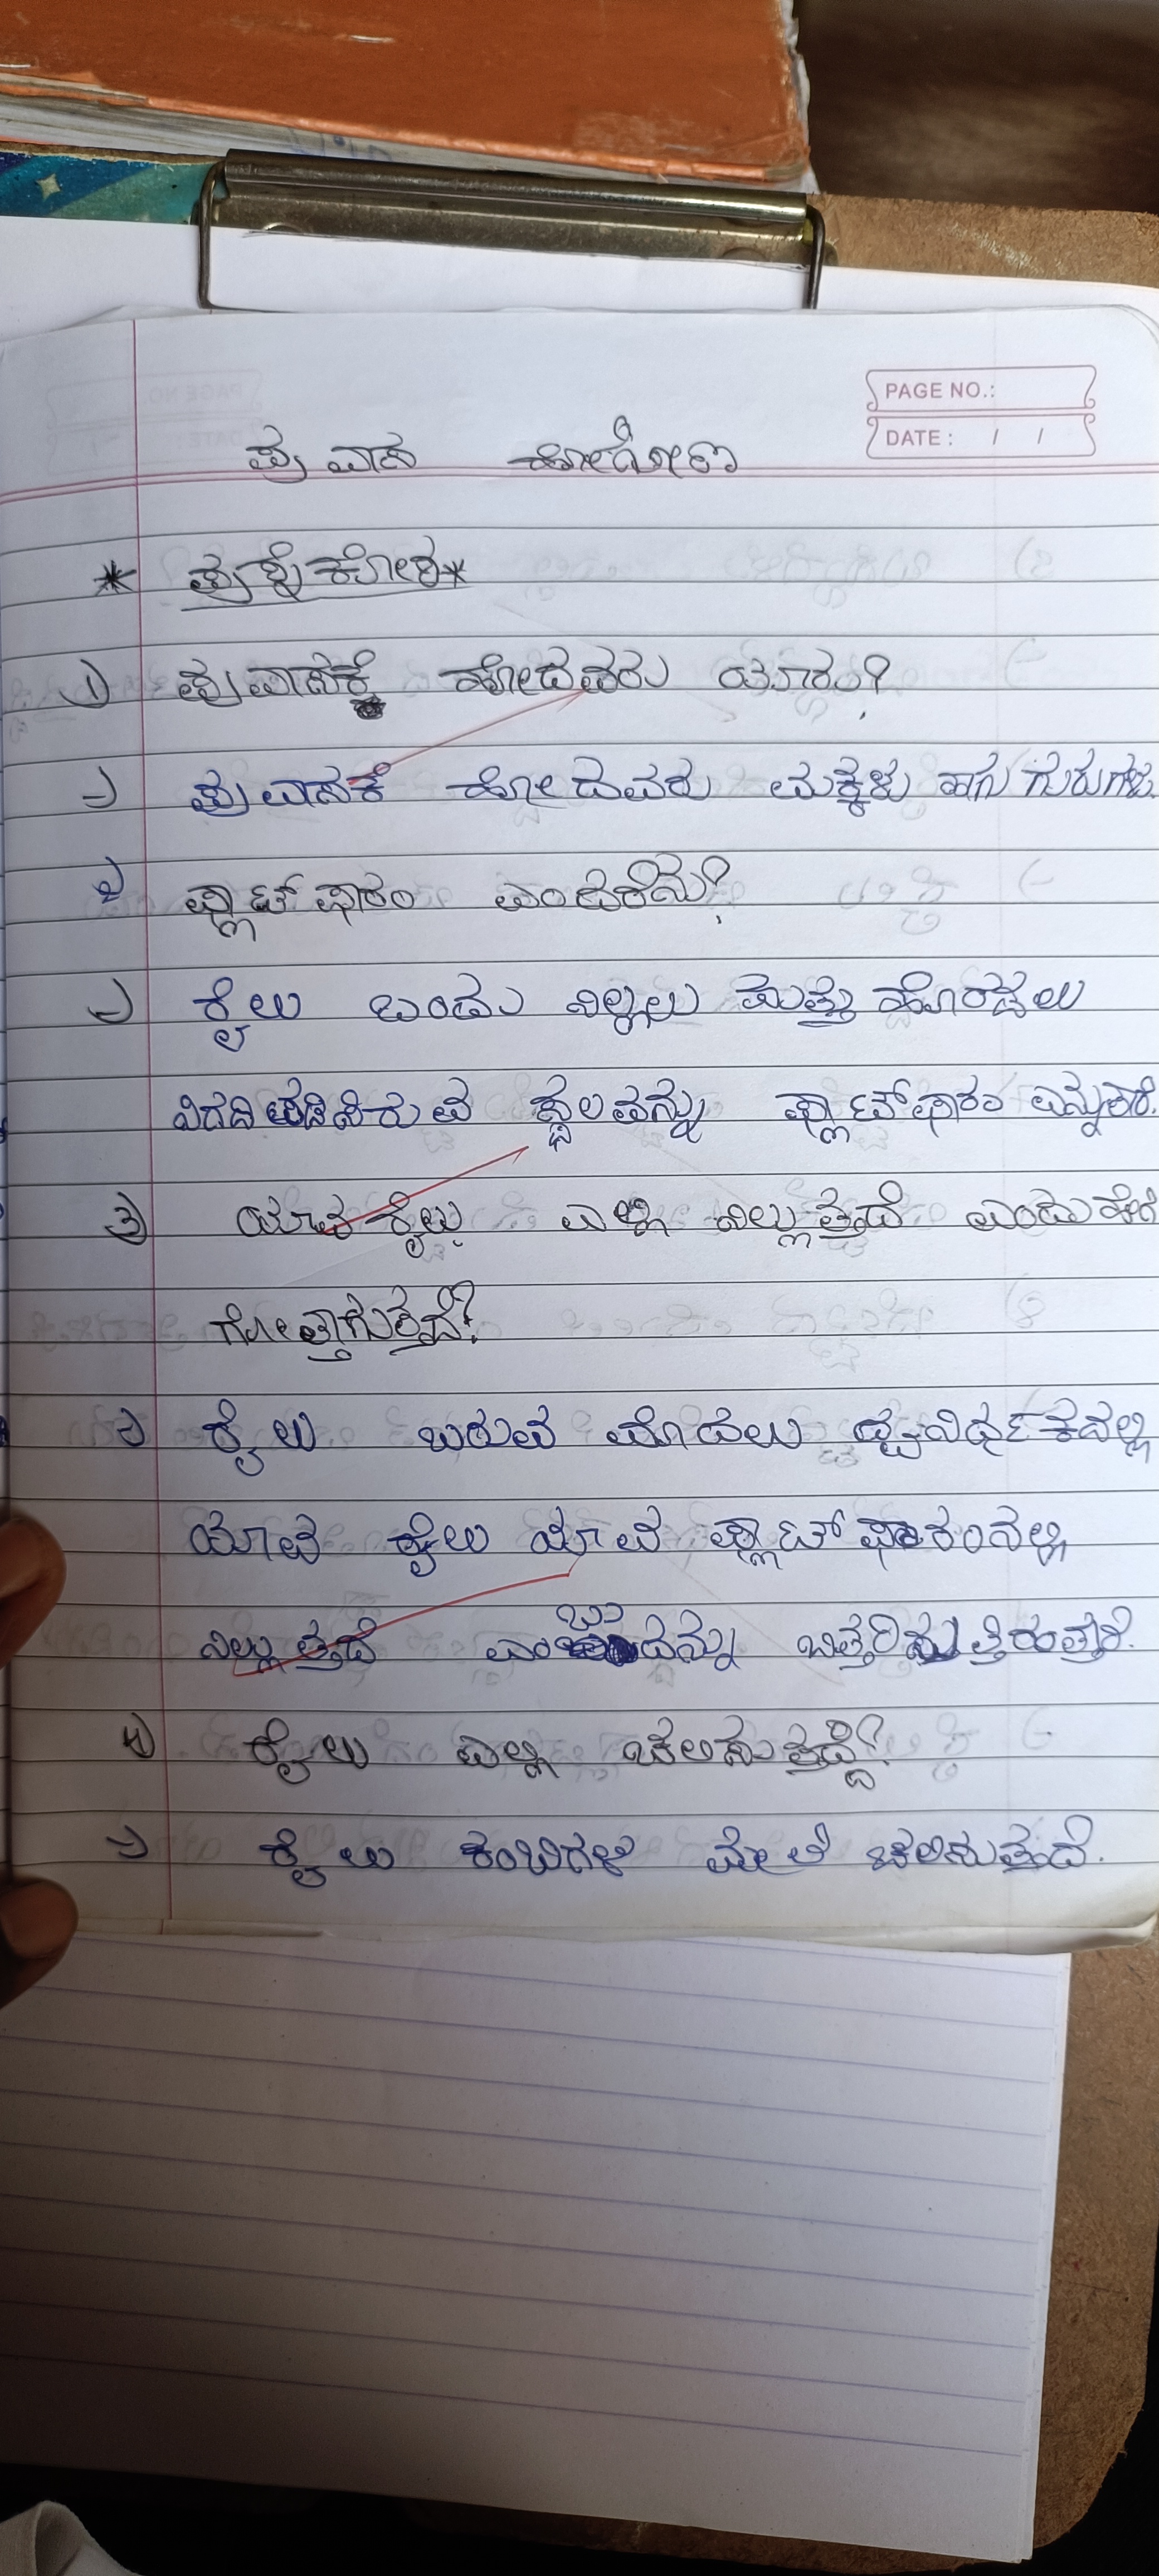 PAGE NO.:
DATE: / /
ಪ್ರವಾಸ ಹೋಗೋಣ
* ಪ್ರಶ್ನೆಕೋಶ*
1) ಪ್ರವಾಸಕ್ಕೆ ಹೋದವರು ಯಾರು?
-) ಪ್ರವಾಸಕೆ ಹೋದವರು ಮಕ್ಕಳು ಹಾಗು ಗುರುಗಳು.
2) ಪ್ಲಾಟ್‌ಫಾರಂ ಎಂದರೇನು?
-) ರೈಲು ಬಂದು ನಿಲ್ಲಲು ಮತ್ತು ಹೊರಡಲು
ನಿಗದಿಪಡಿಸಿರುವ ಸ್ಥಲವನ್ನು ಪ್ಲಾಟ್‌ಫಾರಂ ಎನ್ನುತಾರೆ.
3) ಯಾವ ರೈಲು ಎಲ್ಲಿ ನಿಲ್ಲುತ್ತದೆ ಎಂದು ಹೇಗೆ
ಗೋತ್ತಾಗುತ್ತದೆ?
-) ರೈಲು ಬರುವ ಮೊದಲು ಧ್ವನಿರ್ಧಕದಲ್ಲಿ
ಯಾವ ರೈಲು ಯಾವ ಪ್ಲಾಟ್‌ಫಾರಂನಲ್ಲಿ
ನಿಲ್ಲುತ್ತದೆ ಎಂಬುದನ್ನು ಬಿತ್ತರಿಸುತ್ತಿರುತ್ತಾರೆ.
4) ರೈಲು ಎಲ್ಲಿ ಚಲಿಸುತ್ತದ್ದೆ?
-) ರೈಲು ಕಂಬಿಗಳ ಮೇಲೆ ಚಲಿಸುತ್ತದೆ.